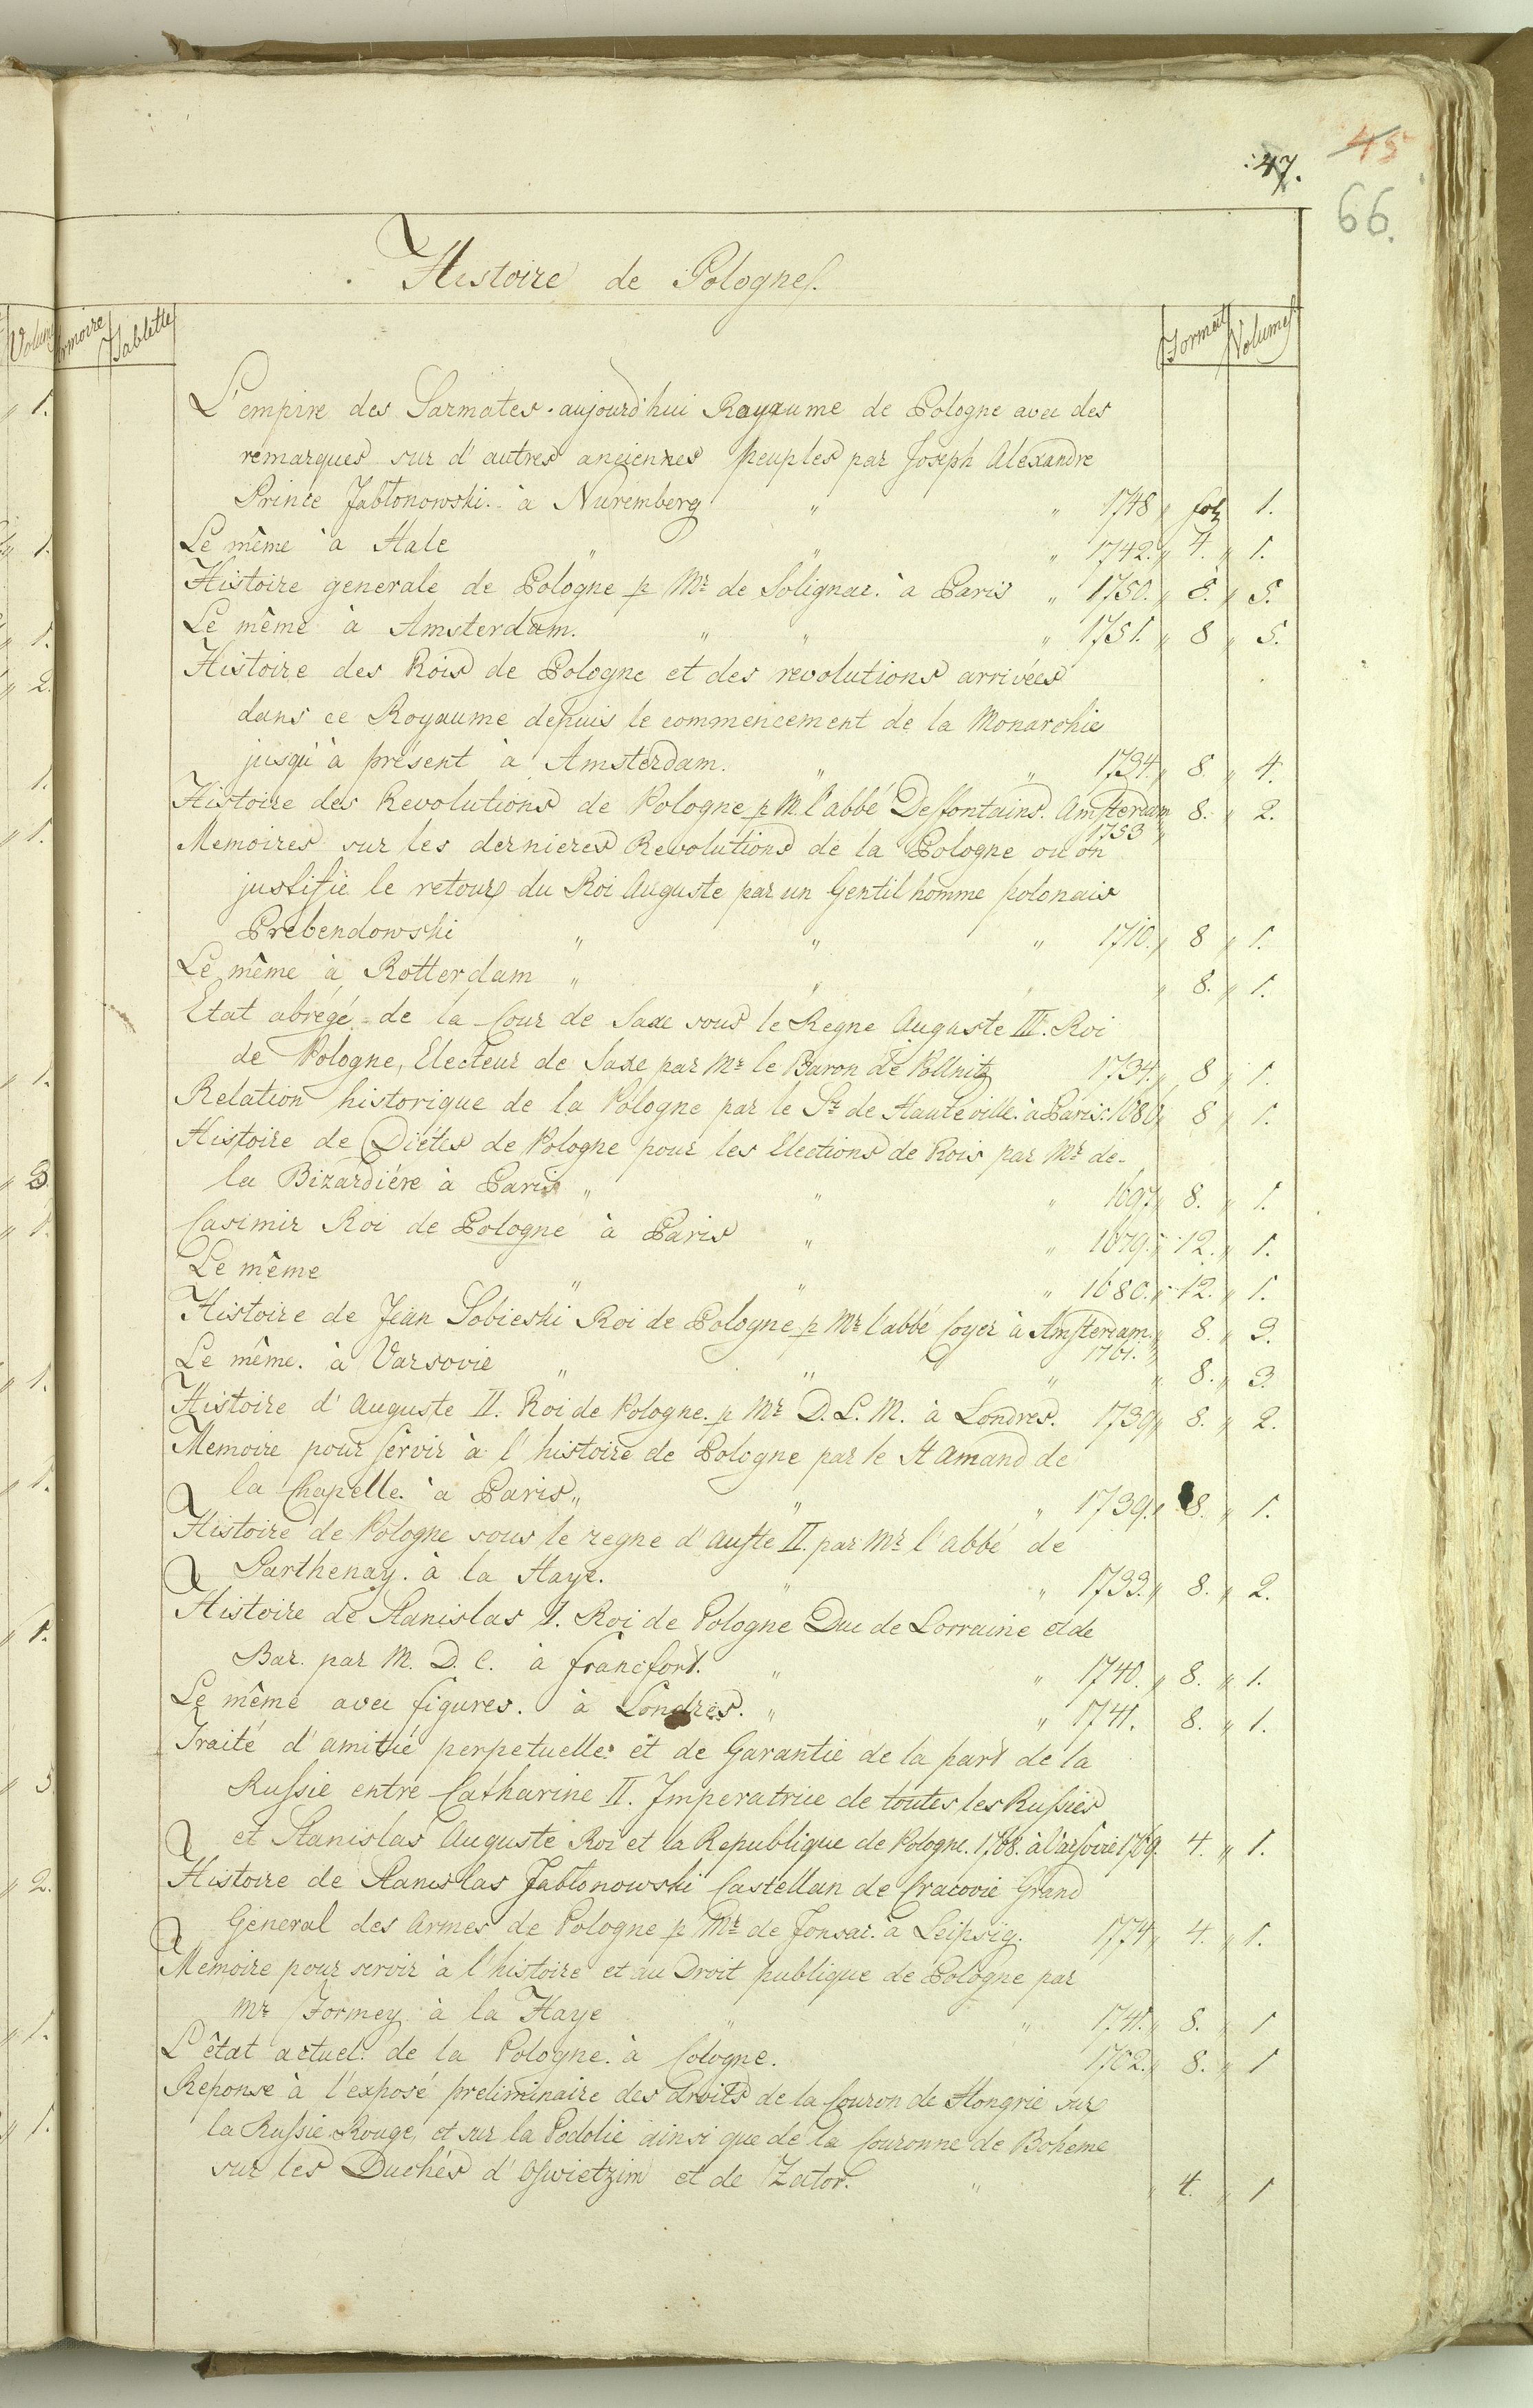 47. 45
66.
Histoire de Pologne.
Armoire Tablette Format Volumes
L'empire des Sarmates aujourd'hui Royaume de Pologne avec des
remarques sur d'autres anciennes peuples par Joseph Alexandre
Prince Jabłonowski. à Nuremberg " " 1748 " fol. 1.
Le même à Hale " " " 1742. " 4. " 1.
Histoire generale de Pologne p Mr de Solignac. à Paris " 1750. " 8. " 5.
Le même à Amsterdam. " " " 1751. " 8 " 5.
Histoire des Rois de Pologne et des revolutions arrivées
dans ce Royaume depuis le commencement de la Monarchie
jusqu'à présent à Amsterdam. " " 1734. " 8. " 4.
Histoire des Revolutions de Pologne p M. l'abbé Deffontains. Amsterdam 8. " 2.
1753 "
Memoires sur les dernieres Revolutions de la Pologne ou on
justifie le retour du Roi Auguste par un Gentil homme polonais
Prebendowski " " " 1710. " 8 " 1.
Le même à Rotterdam " " " " 8. " 1.
Etat abrégé de la Cour de Saxe sous le Regne Auguste III. Roi
de Pologne, Electeur de Saxe par Mr le Baron de Pollnitz 1734. " 8 " 1.
Relation historique de la Pologne par le Sr de Hauteville. à Paris. 1686 " 8 " 1.
Histoire de Diétes de Pologne pour les Elections de Rois par Mr de-
la Bizardiére à Paris " " " 1697 " 8. " 1.
Casimir Roi de Pologne à Paris " " 1679. " 12. " 1.
Le même " " " 1680. " 12. " 1.
Histoire de Jean Sobieski Roi de Pologne p Mr l'abbé Coyer à Amsterdam. " 8. " 3.
1761. "
Le même. à Varsovie " " " " 8. " 3.
Histoire d'Auguste II. Roi de Pologne. p Mr D. L. M. à Londres. 1739 " 8. " 2.
Memoire pour servir à l'histoire de Pologne par le St Amand de
la Chapelle. à Paris " " " 1739. " 8. " 1.
Histoire de Pologne sous le regne d'Auste II. par Mr l'abbé de
Parthenay. à la Haye. " " 1733. " 8. " 2.
Histoire de Stanislas I. Roi de Pologne Duc de Lorraine et de
Bar. par M. D. C. à francfort. " " 1740. " 8. " 1.
Le même avec figures. à Londres. " " 1741. 8. " 1.
Traité d'amitié perpetuelle et de Garantie de la part de la
Russie entre Catharine II. Imperatrice de toutes les Russies
et Stanislas Auguste Roi et la Republique de Pologne. 1768. à Varsovie 1769. 4. " 1.
Histoire de Stanislas Jabłonowski Castellan de Cracovie Grand
General des Armes de Pologne p Mr de Jonsac. à Leipsig. 1774 " 4. " 1.
Memoire pour servir à l'histoire et au Droit publique de Pologne par
Mr Formey à la Haye " " 1741. " 8. " 1
L'êtat actuel. de la Pologne. à Cologne. 1702. " 8. " 1
Reponse à l'exposé preliminaire des droits de la Couron de Hongrie sur
la Russie Rouge, et sur la Podolie ainsi que de la Couronne de Boheme
sur les Duchés d'Oswietzim et de Zator. " " 4. " 1